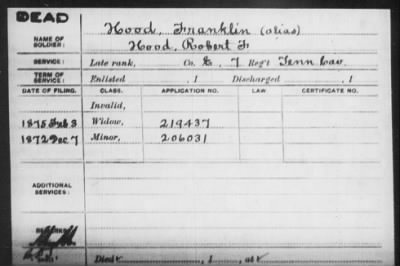 DEAD
NAME OF SOLDIER: Hood, Franklin (alias)
Hood, Robert F
SERVICE: Late rank, Co. E, 7 Reg't Tenn Cav
TERM OF SERVICE: Enlisted , 1 Discharged , 1
DATE OF FILING. CLASS. APPLICATION NO. LAW. CERTIFICATE NO.
Invalid,
1875 Feb 3 Widow, 219437
1872 Dec 7 Minor, 206031
ADDITIONAL SERVICES:
REMARKS:
Died , 1 , at